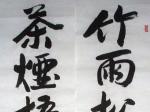 竹雨松
茶煙梧